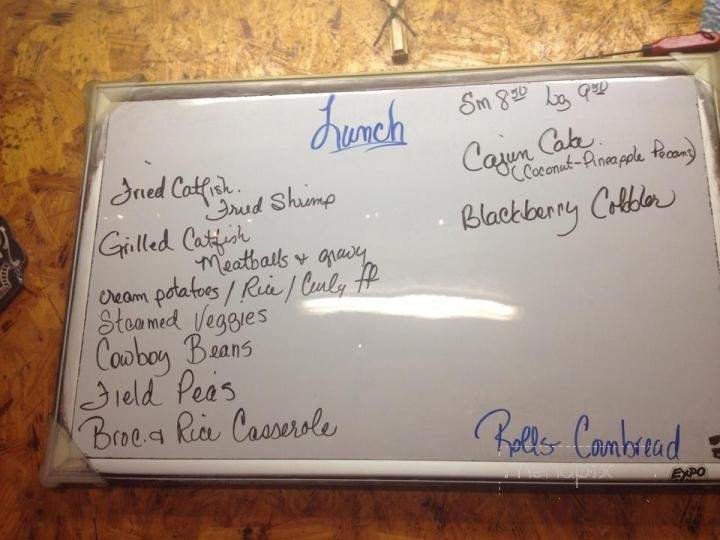 Lunch
Sm 8.50 Lg 9.50
Fried Catfish.
Fried Shrimp
Grilled Catfish
Meatballs & gravy
cream potatoes / Rice / Curly ff
Steamed Veggies
Cowboy Beans
Field Peas
Broc. & Rice Casserole
Cajun Cake
(Coconut-Pineapple Pecans)
Blackberry Cobbler
Rolls - Cornbread
EXPO